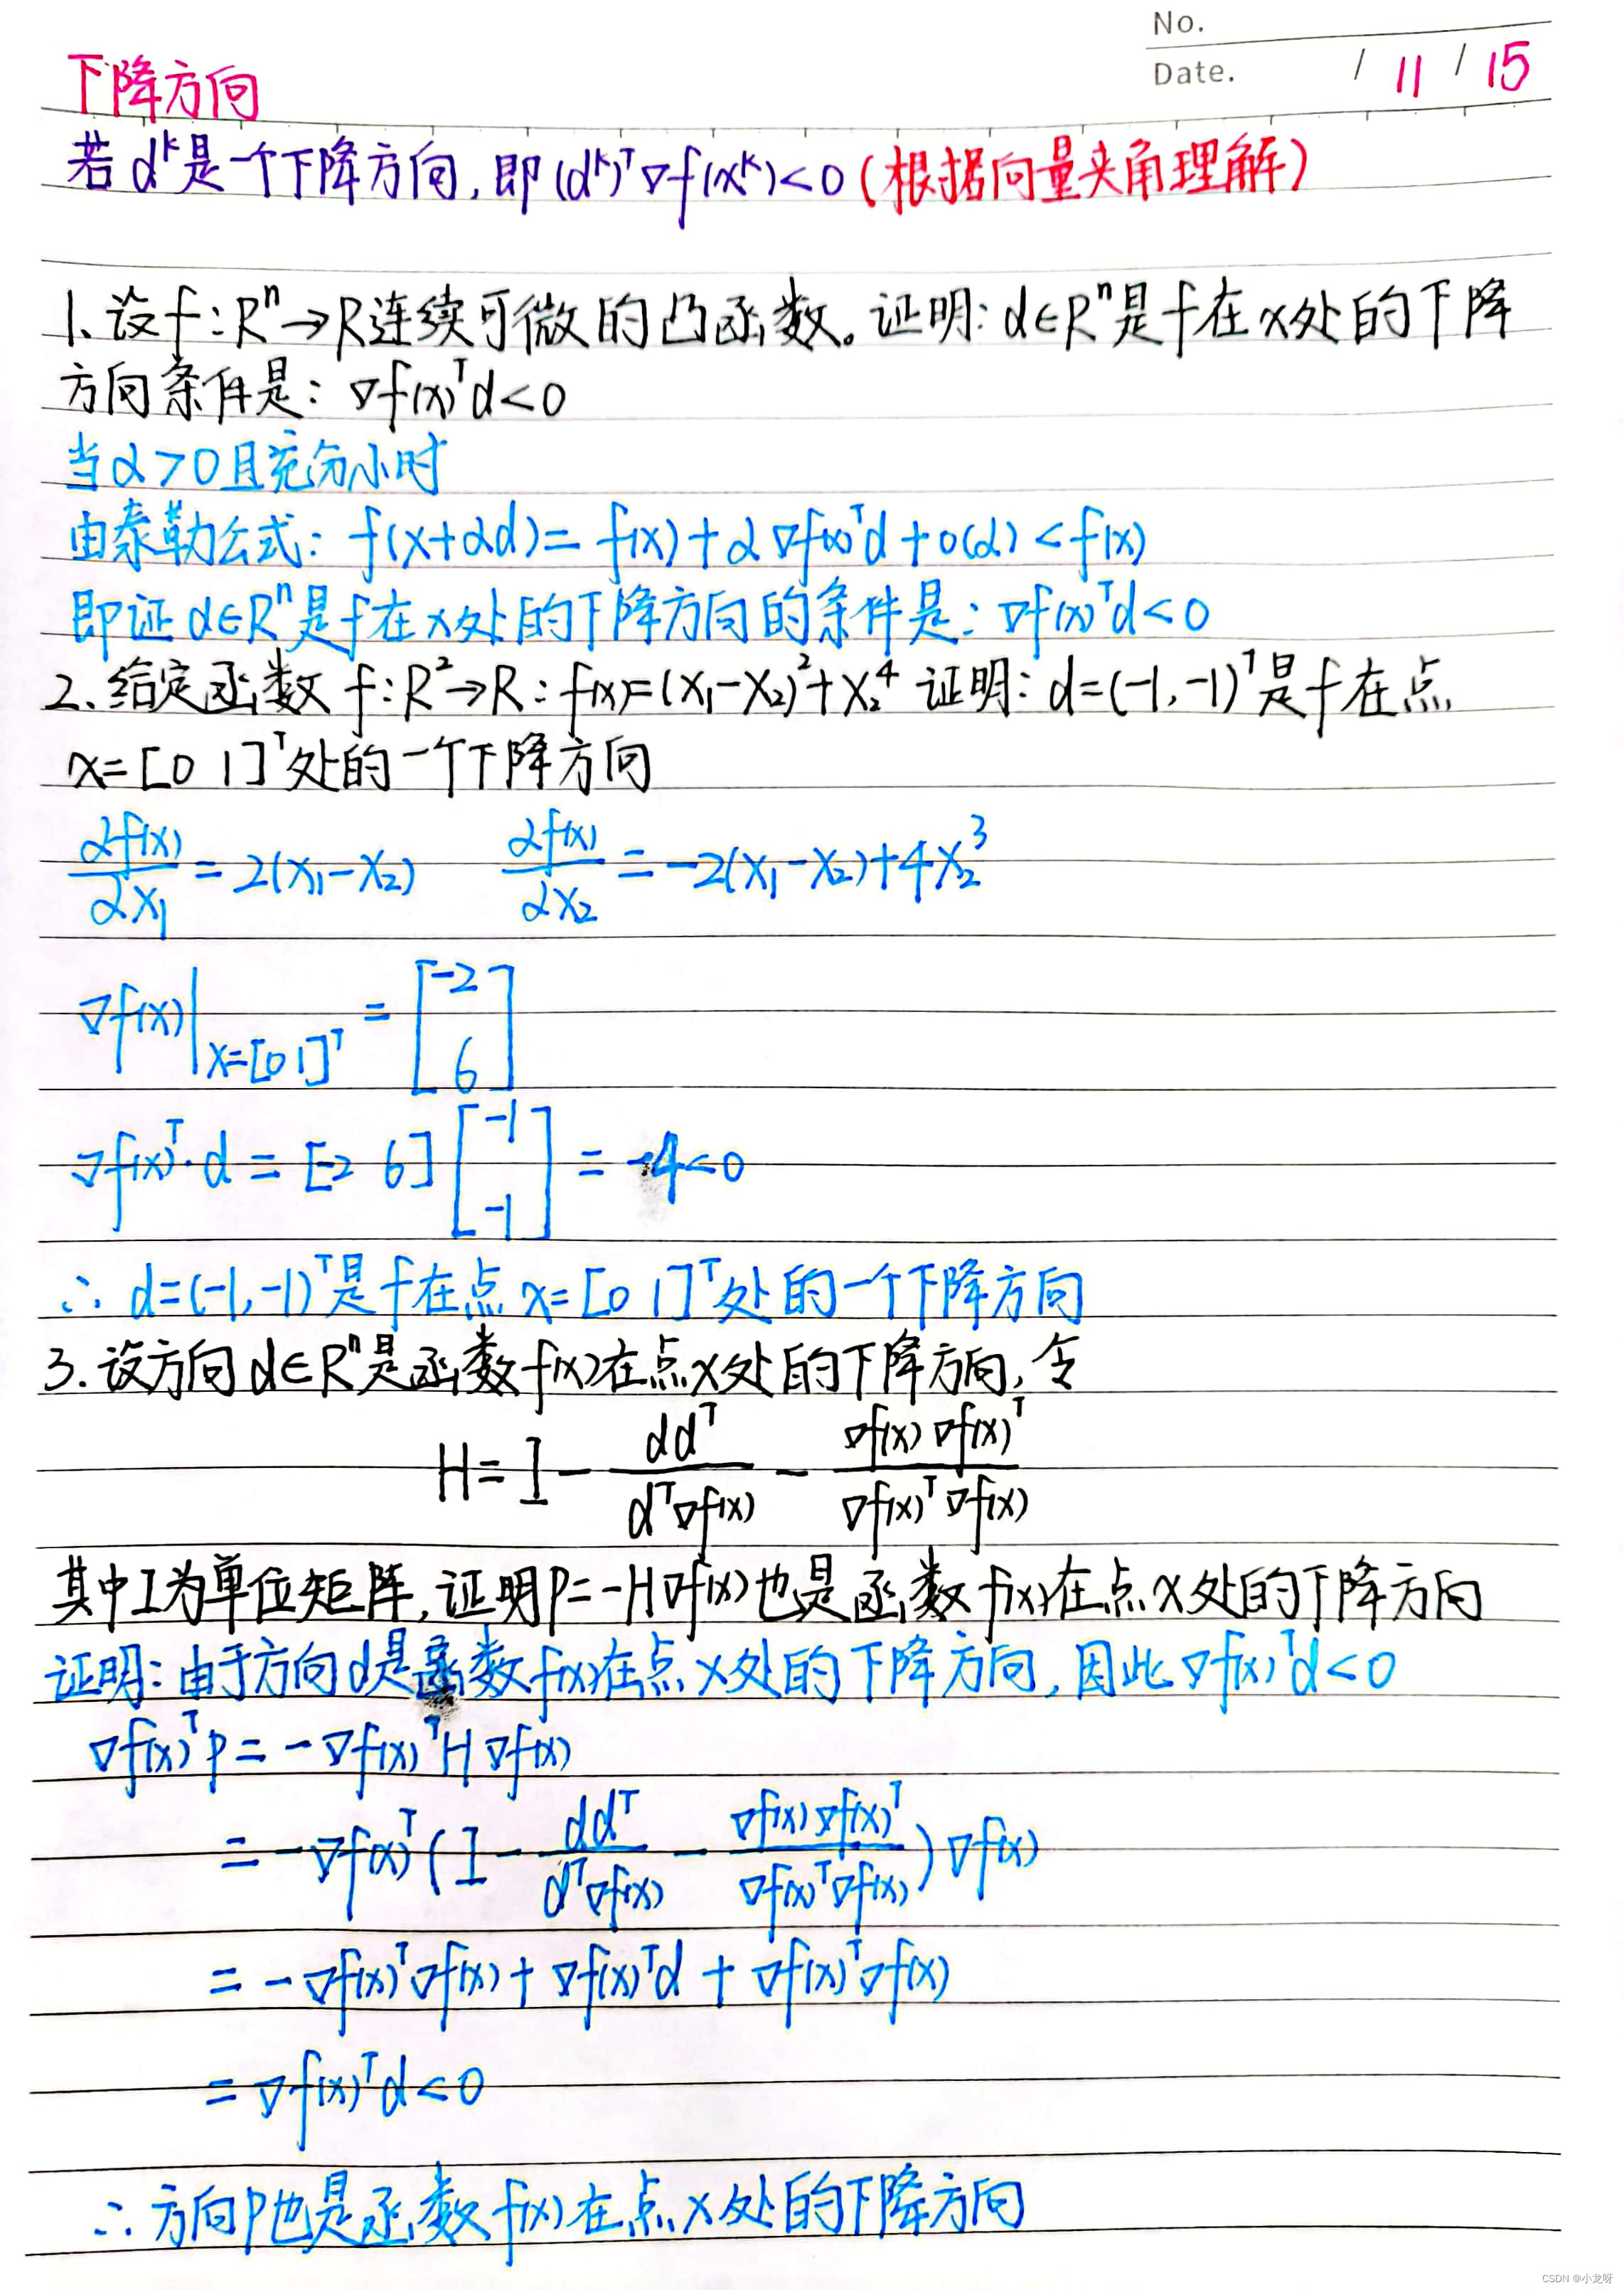 No.
Date. / 11 / 15
下降方向
若 d^k 是一个下降方向, 即 (d^k)^T ∇f(x^k) < 0 (根据向量夹角理解)
1、设 f : R^n → R 连续可微的凸函数。证明: d∈R^n 是 f 在 x 处的下降
方向条件是: ∇f(x)^T d < 0
当 α > 0 且充分小时
由泰勒公式: f(x+αd) = f(x) + α ∇f(x)^T d + o(α) < f(x)
即证 d∈R^n 是 f 在 x 处的下降方向的条件是: ∇f(x)^T d < 0
2、给定函数 f : R^2 → R : f(x) = (x_1 - x_2)^2 + x_2^4 证明: d = (-1, -1)^T 是 f 在点
x = [0 1]^T 处的一个下降方向
∂f(x)/∂x_1 = 2(x_1 - x_2) ∂f(x)/∂x_2 = -2(x_1 - x_2) + 4x_2^3
∇f(x)|_{x=[0 1]^T} = [-2 6]
∇f(x)^T · d = [-2 6] [-1 -1] = -4 < 0
∴ d = (-1, -1)^T 是 f 在点 x = [0 1]^T 处的一个下降方向
3. 设方向 d∈R^n 是函数 f(x) 在点 x 处的下降方向, 令
H = I - dd^T / d^T ∇f(x) - ∇f(x) ∇f(x)^T / ∇f(x)^T ∇f(x)
其中 I 为单位矩阵, 证明 P = -H∇f(x) 也是函数 f(x) 在点 x 处的下降方向
证明: 由于方向 d 是函数 f(x) 在点 x 处的下降方向, 因此 ∇f(x)^T d < 0
∇f(x)^T P = -∇f(x)^T H ∇f(x)
= -∇f(x)^T (I - dd^T / d^T ∇f(x) - ∇f(x) ∇f(x)^T / ∇f(x)^T ∇f(x)) ∇f(x)
= -∇f(x)^T ∇f(x) + ∇f(x)^T d + ∇f(x)^T ∇f(x)
= ∇f(x)^T d < 0
∴ 方向 P 也是函数 f(x) 在点 x 处的下降方向
CSDN @小龙呀